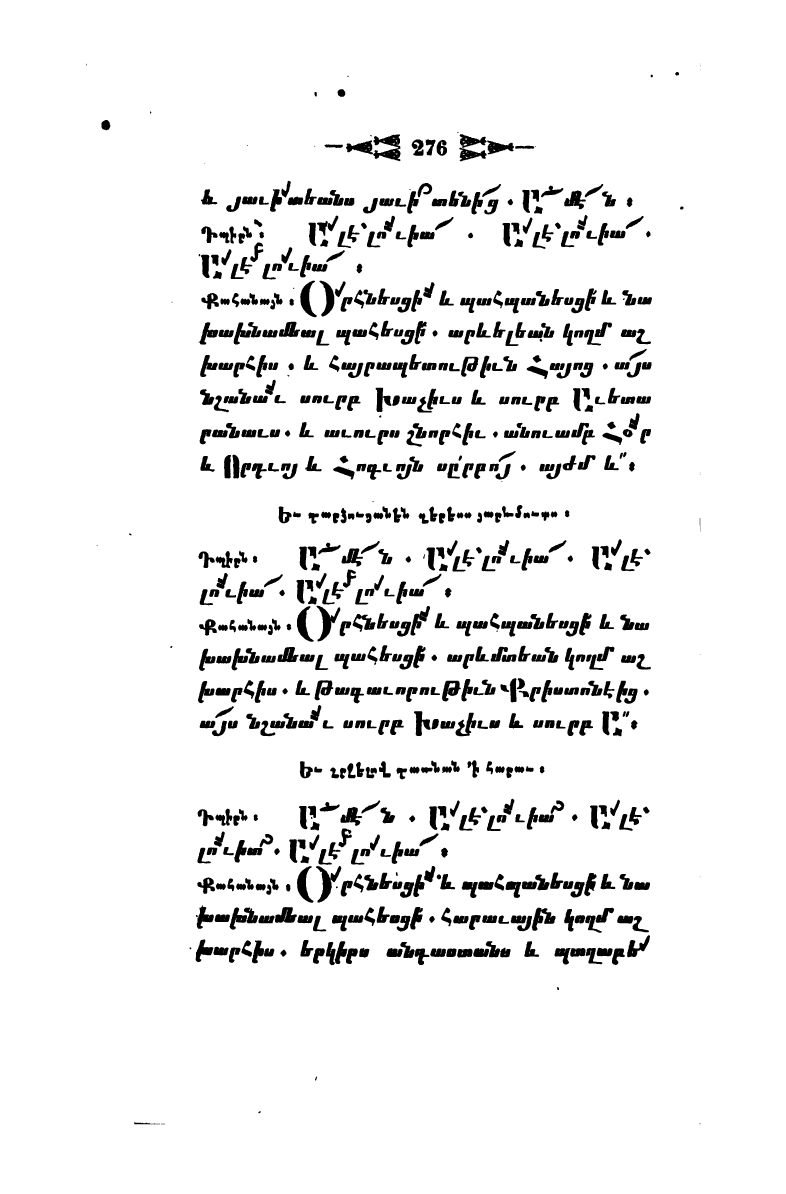 276
և յաւիտեանս յաւիտենից . Ամէն ։
Դպիրն ։ Ալէլուիա . Ալէլուիա .
Ալէլուիա ։
Քահանայն ։ Օրհնեսցի և պահպանեսցի և նա
խախնամեալ պահեսցի . արևելեան կողմ աշ
խարհիս . և Հայրապետութիւն Հայոց . այս
նշանաւ սուրբ Խաչիւս և սուրբ Աւետա
րանաւս . և աւուրս շնորհիւ . անուամբ Հօր
և Որդւոյ և Հոգւոյն սրբոյ . այժմ և ։
Եւ դարձուցանեն զերեսս յարևմուտս ։
Դպիրն ։ Ամէն . Ալէլուիա . Ալէ
լուիա . Ալէլուիա ։
Քահանայն ։ Օրհնեսցի և պահպանեսցի և նա
խախնամեալ պահեսցի . արևմտեան կողմ աշ
խարհիս . և Թագաւորութիւն Քրիստոնէից .
այս նշանաւ սուրբ Խաչիւս և սուրբ Ա ։
Եւ շրջելով դառնան ՚ի հարաւ ։
Դպիրն ։ Ամէն . Ալէլուիա . Ալէ
լուիա . Ալէլուիա ։
Քահանայն ։ Օրհնեսցի և պահպանեսցի և նա
խախնամեալ պահեսցի . հարաւային կողմ աշ
խարհիս . երկիրս անդաստանս և պտղաբե